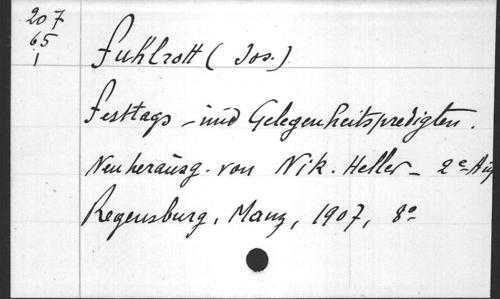 207
65
1
Fuhlrott (Jos.)
Festtags- und Gelegenheitspredigten.
Neu herausg. von Nik. Heller - 2e Aufl
Regensburg, Manz, 1907, 8°